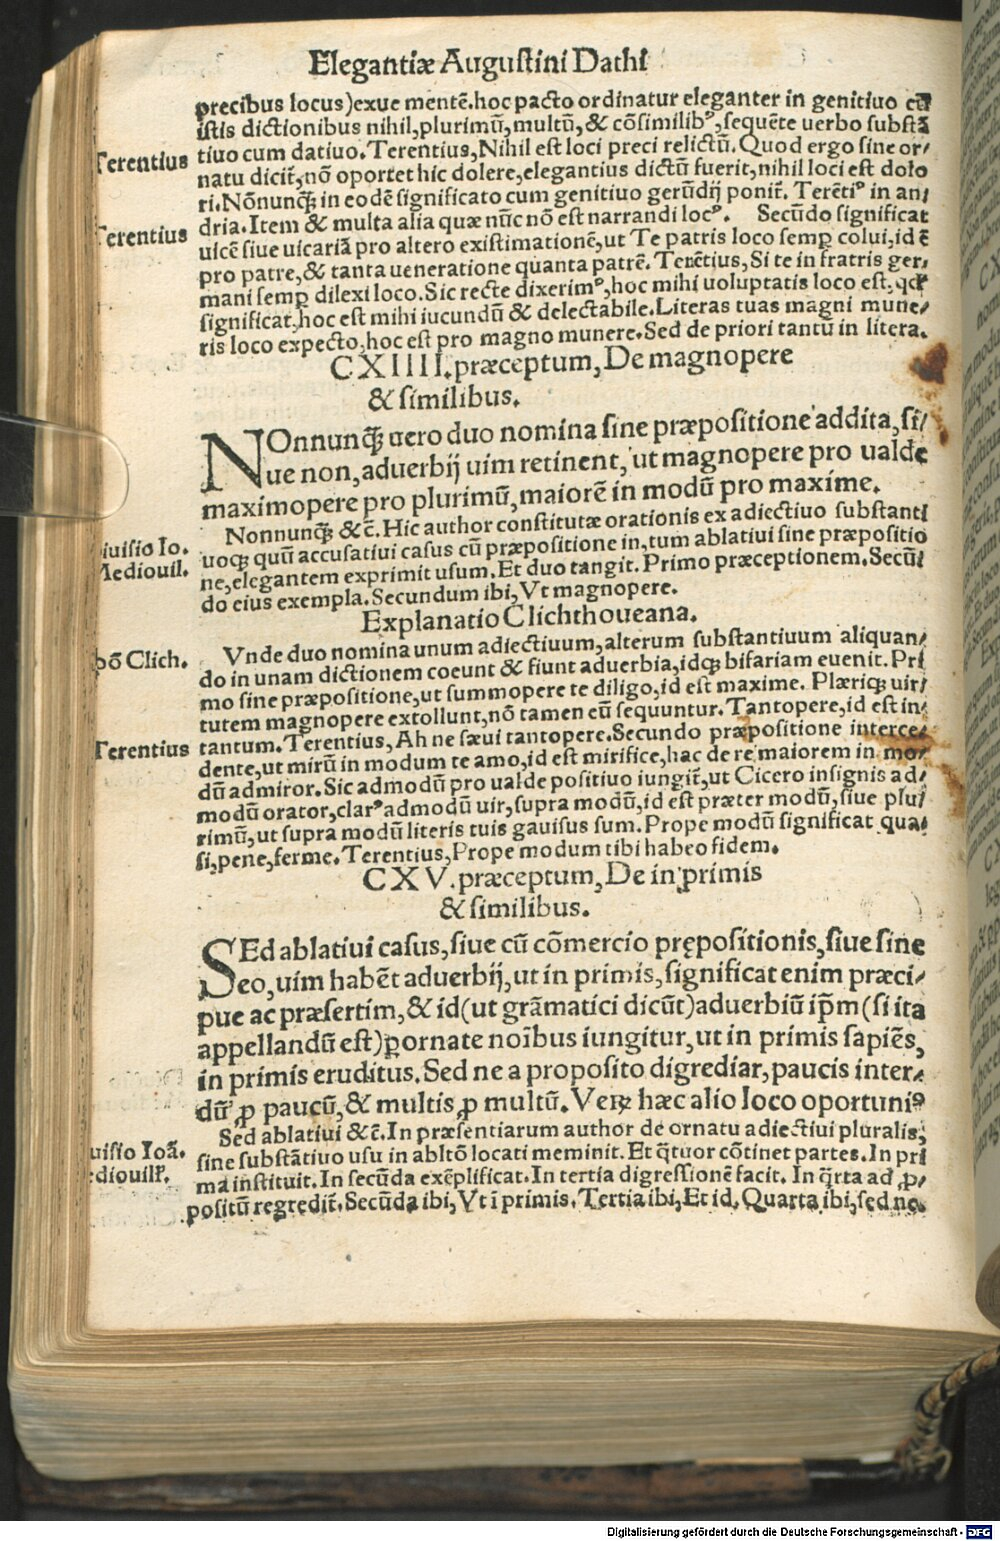 Elegantiæ Augustini Dathi
precibus locus)exue mentē.hoc pacto ordinatur eleganter in genitiuo cū
istis dictionibus nihil,plurimū,multū,& cōsimilibꝰ,sequēte uerbo substā
Terentius
tiuo cum datiuo.Terentius,Nihil est loci preci relictū.Quod ergo sine or/
natu dicit̄,nō oportet hic dolere,elegantius dictū fuerit,nihil loci est dolo
ri.Nōnunq̄ʒ in eodē significato cum genitiuo gerūdij ponit̄. Terētiꝰ in an/
Terentius
dria.Item & multa alia quæ nūc nō est narrandi locꝰ. Secūdo significat
uicē siue uicariā pro altero existimationē,ut Te patris loco semp̲ colui,id ē
pro patre,& tanta ueneratione quanta patrē. Terētius,Si te in fratris ger/
mani semp̲ dilexi loco.Sic recte dixerimꝰ,hoc mihi uoluptatis loco est.qd̛
significat,hoc est mihi iucundū & delectabile.Literas tuas magni mune/
ris loco expecto,hoc est pro magno munere.Sed de priori tantū in litera.
CXIIII.præceptum,De magnopere
& similibus.
NOnnunq̄ʒ uero duo nomina sine præpositione addita,si/
ue non,aduerbij uim retinent,ut magnopere pro ualde
maximopere pro plurimū,maiorē in modū pro maxime.
Nonnunq̄ʒ &c̄. Hic author constitutæ orationis ex adiectiuo substanti
iuisio Io.
uoqʒ quū accusatiui casus cū præpositione in,tum ablatiui sine præpositio
Mediouil.
ne,elegantem exprimit usum.Et duo tangit. Primo præceptionem.Secū/
do eius exempla.Secundum ibi,Vt magnopere.
Explanatio Clichthoueana.
pō Clich.
Vnde duo nomina unum adiectiuum,alterum substantiuum aliquan/
do in unam dictionem coeunt & fiunt aduerbia,idqʒ bifariam euenit. Pri
mo sine præpositione,ut summopere te diligo,id est maxime. Plæriqʒ uir/
tutem magnopere extollunt,nō tamen eū sequuntur. Tantopere,id est in/
Terentius
tantum.Terentius,Ah ne sæui tantopere.Secundo præpositione interce/
dente,ut mirū in modum te amo,id est mirifice,hac de re maiorem in mo/
dū admiror. Sic admodū pro ualde positiuo iungit̄,ut Cicero insignis ad/
modū orator,clarꝰ admodū uir,supra modū,id est præter modū,siue plu/
rimū,ut supra modū literis tuis gauisus sum. Prope modū significat qua/
si,pene,ferme.Terentius,Prope modum tibi habeo fidem.
CXV.præceptum,De in primis
& similibus.
SEd ablatiui casus,siue cū cōmercio prępositionis,siue sine
eo,uim habēt aduerbij,ut in primis,significat enim præci/
pue ac præsertim,& id(ut grāmatici dicūt)aduerbiū ip̄m(si ita
appellandū est)p̲ornate noībus iungitur,ut in primis sapiēs,
in primis eruditus.Sed ne a proposito digrediar,paucis inter/
dū ꝓ paucū,& multis ꝓ multū. Veꝝ hæc alio loco oportuniꝰ
Sed ablatiui &c̄.In præsentiarum author de ornatu adiectiui pluralis,
uisio Ioā.
sine substātiuo usu in abltō locati meminit. Et q̄tuor cōtinet partes.In pri
ediouilꝰ.
ma instituit. In secūda exēplificat.In tertia digressionē facit. In q̄rta ad ꝓ/
positū regredit̄.Secūda ibi,Vt ī primis. Tertia ibi,Et id. Quarta ibi,sed ne.
Digitalisierung gefördert durch die Deutsche Forschungsgemeinschaft - DFG